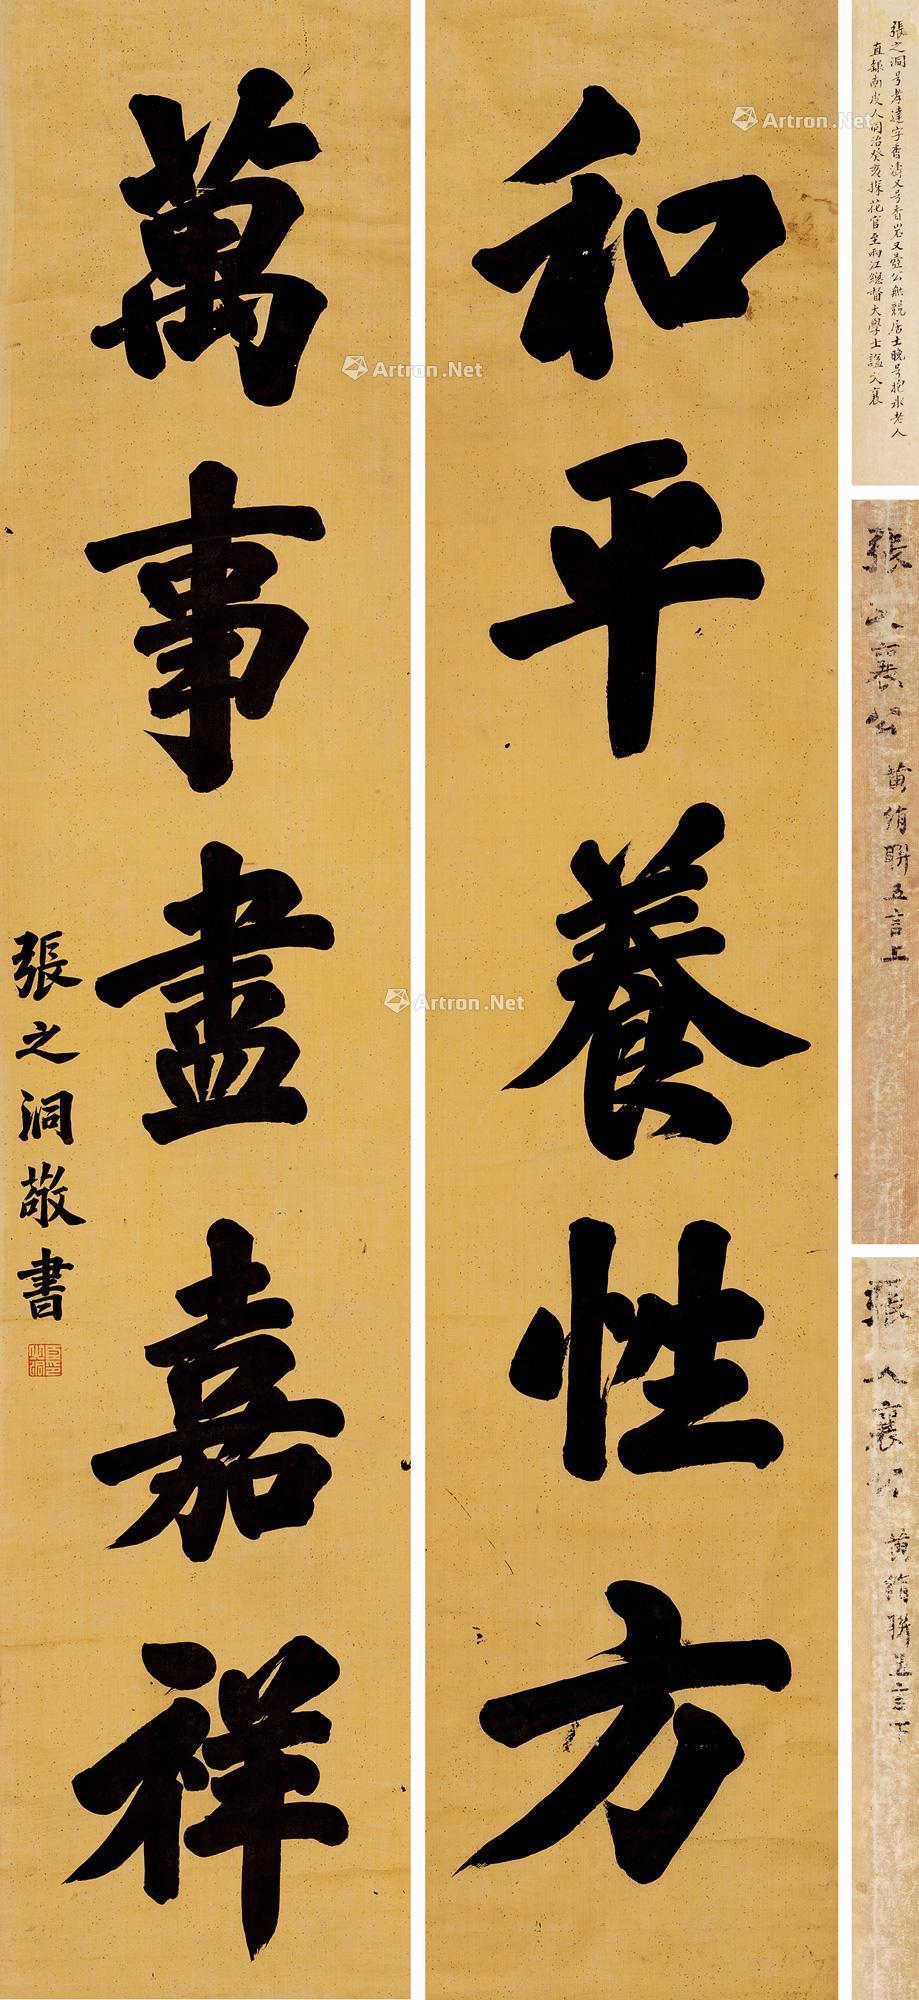 和平養性方
萬事盡嘉祥
張之洞敬書
張之洞号孝達字香濤又号香岩又壺公無競居士晚号抱冰老人
直隸南皮人同治癸亥探花官至兩江總督大學士謚文襄
張文襄公 黃絹聯五言上
張文襄公 黃絹聯五言下
Artron.Net
Artron.Net
Artron.Net